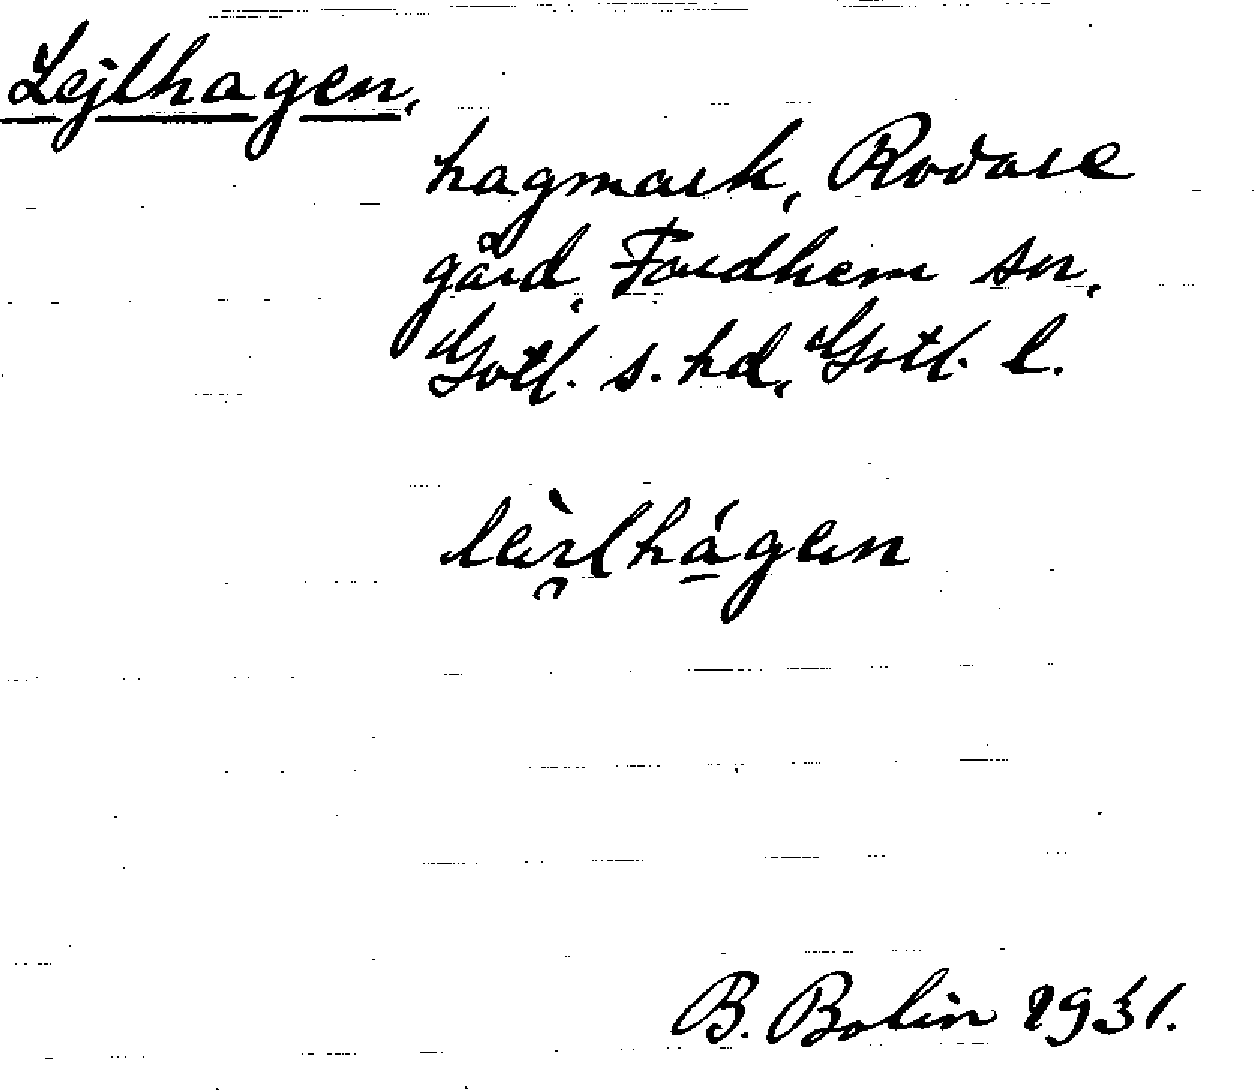 Lejlhagen,
hagmark, Rodarе
gård, Fardhem sn,
Gotl. s. hd, Gotl. l.
B. Bolin 1931.